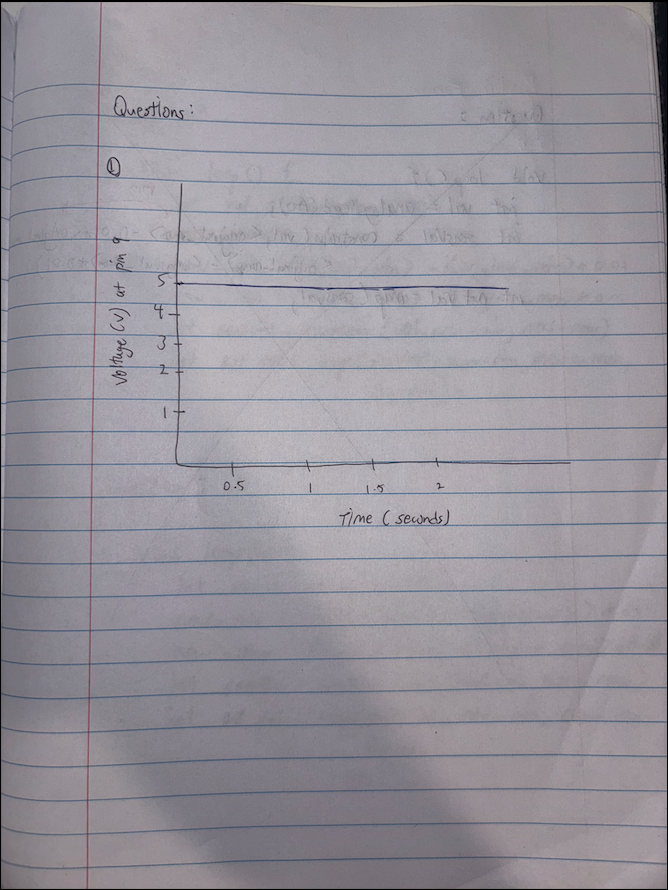 Questions:
①
Voltage (V) at pin 9
5
4
3
2
1
0.5 1 1.5 2
Time (seconds)